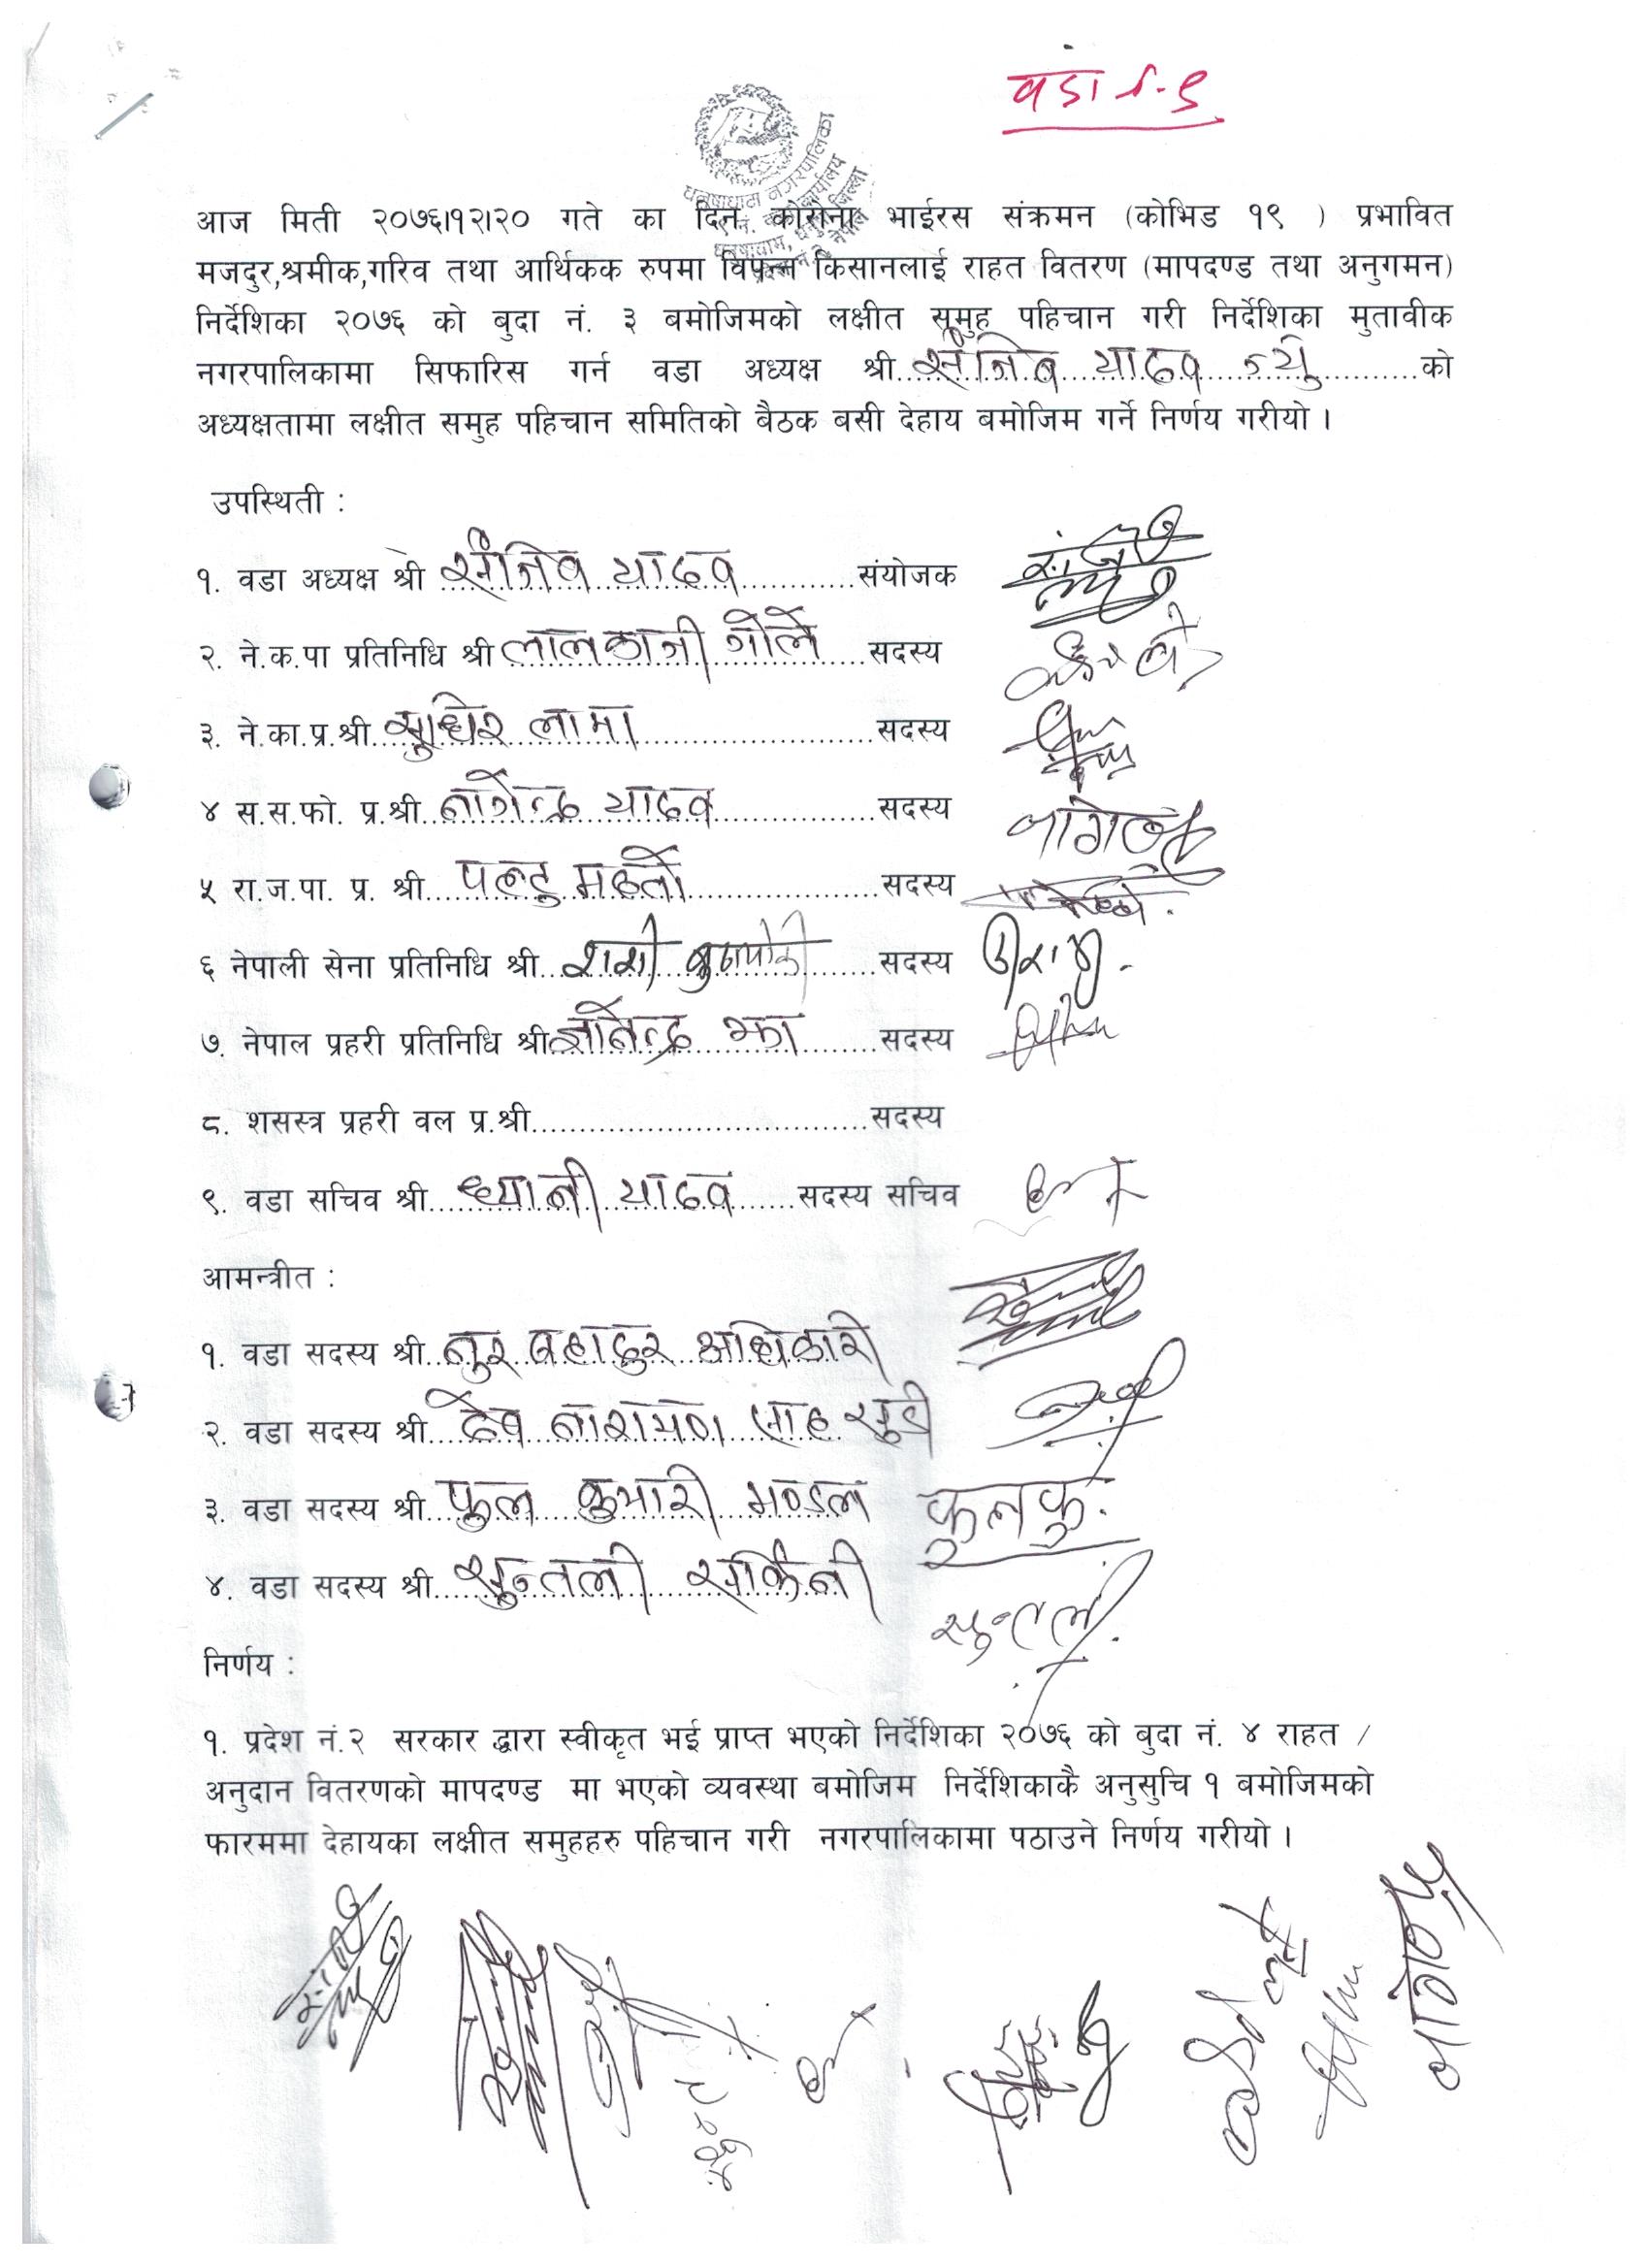 वडा नं-९
धनुषाधाम नगरपालिका
आज मिती २०७६।१२।२० गते का दिन कोरोना भाईरस संक्रमन (कोभिड १९ ) प्रभावित
मजदुर,श्रमीक,गरिव तथा आर्थिकक रुपमा विपन्न किसानलाई राहत वितरण (मापदण्ड तथा अनुगमन)
निर्देशिका २०७६ को बुदा नं. ३ बमोजिमको लक्षीत समुह पहिचान गरी निर्देशिका मुतावीक
नगरपालिकामा सिफारिस गर्न वडा अध्यक्ष श्री संजिब यादव ज्यु को
अध्यक्षतामा लक्षीत समुह पहिचान समितिको बैठक बसी देहाय बमोजिम गर्ने निर्णय गरीयो ।
उपस्थिती :
१. वडा अध्यक्ष श्री संजिव यादव संयोजक
२. ने.क.पा प्रतिनिधि श्री लालकाजी गोले सदस्य
३. ने.का.प्र.श्री सुधिर लामा सदस्य
४ स.स.फो. प्र.श्री नागेन्द्र यादव सदस्य
५ रा.ज.पा. प्र. श्री पल्टु महतो सदस्य
६ नेपाली सेना प्रतिनिधि श्री सदस्य
७. नेपाल प्रहरी प्रतिनिधि श्री झा सदस्य
८. शसस्त्र प्रहरी वल प्र.श्री सदस्य
९. वडा सचिव श्री ध्यानी यादव सदस्य सचिव
आमन्त्रीत :
१. वडा सदस्य श्री नुर बहादुर अधिकारी
२. वडा सदस्य श्री देव नारायण साह सुडी
३. वडा सदस्य श्री फुल कुमारी मण्डल फुलकु.
४. वडा सदस्य श्री सुन्तली सार्किनी
सुन्तली
निर्णय :
१. प्रदेश नं.२ सरकार द्धारा स्वीकृत भई प्राप्त भएको निर्देशिका २०७६ को बुदा नं. ४ राहत /
अनुदान वितरणको मापदण्ड मा भएको व्यवस्था बमोजिम निर्देशिकाकै अनुसुचि १ बमोजिमको
फारममा देहायका लक्षीत समुहहरु पहिचान गरी नगरपालिकामा पठाउने निर्णय गरीयो ।